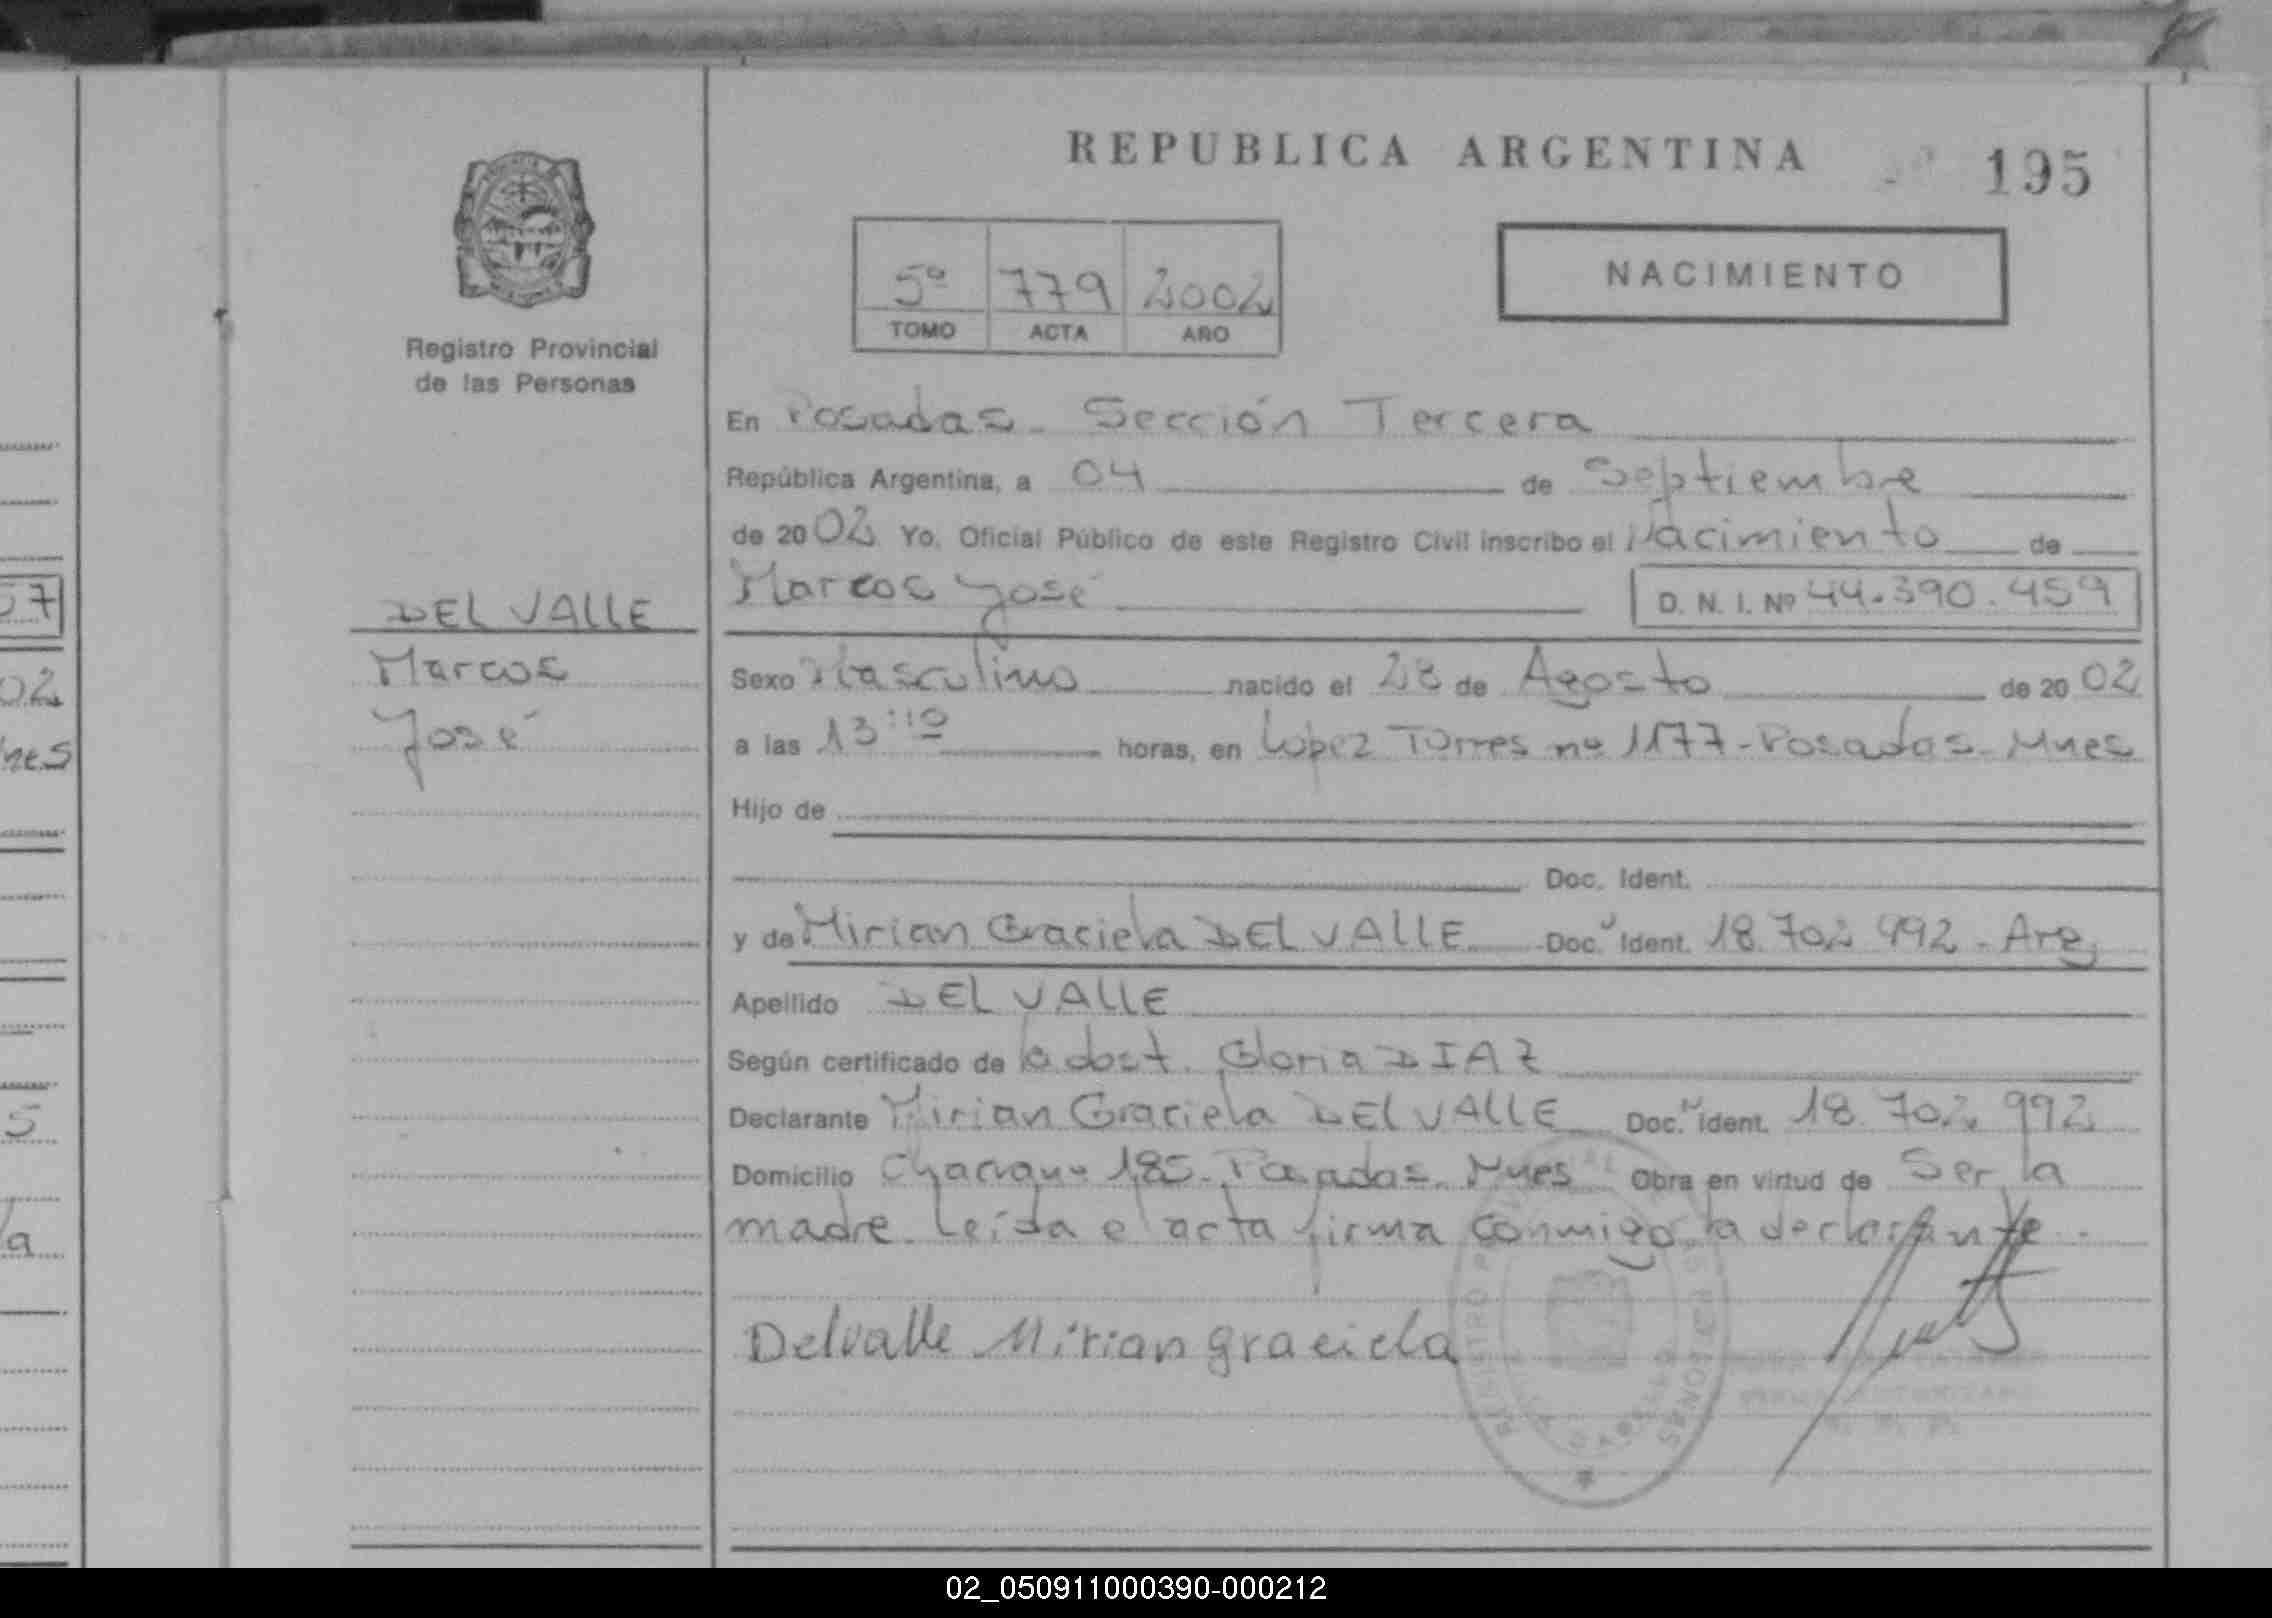 REPUBLICA ARGENTINA
195
5º 779 2002
TOMO ACTA AÑO
NACIMIENTO
Registro Provincial
de las Personas
En Posadas - Sección Tercera
República Argentina, a 04 de Septiembre
de 2002 Yo. Oficial Público de este Registro Civil inscribo el Nacimiento de
Marcos José D. N. I. Nº 44.390.459
DEL VALLE
Marcos
José
Sexo Masculino nacido el 28 de Agosto de 2002
a las 13:10 horas, en Lopez Torres nº 1177 - Posadas - Mnes
Hijo de
Doc. Ident.
y de Mirian Graciela DEL VALLE Doc. Ident. 18.702.992 - Arg
Apellido DEL VALLE
Según certificado de la obst. Gloria DIAZ
Declarante Mirian Graciela DEL VALLE Doc. Ident. 18.702.992
Domicilio 185 - Posadas - Mnes Obra en virtud de Ser la
madre. Leída el acta firma conmigo la declarante.
Delvalle Mirian graciela
02
nes
5
la
02_050911000390-000212